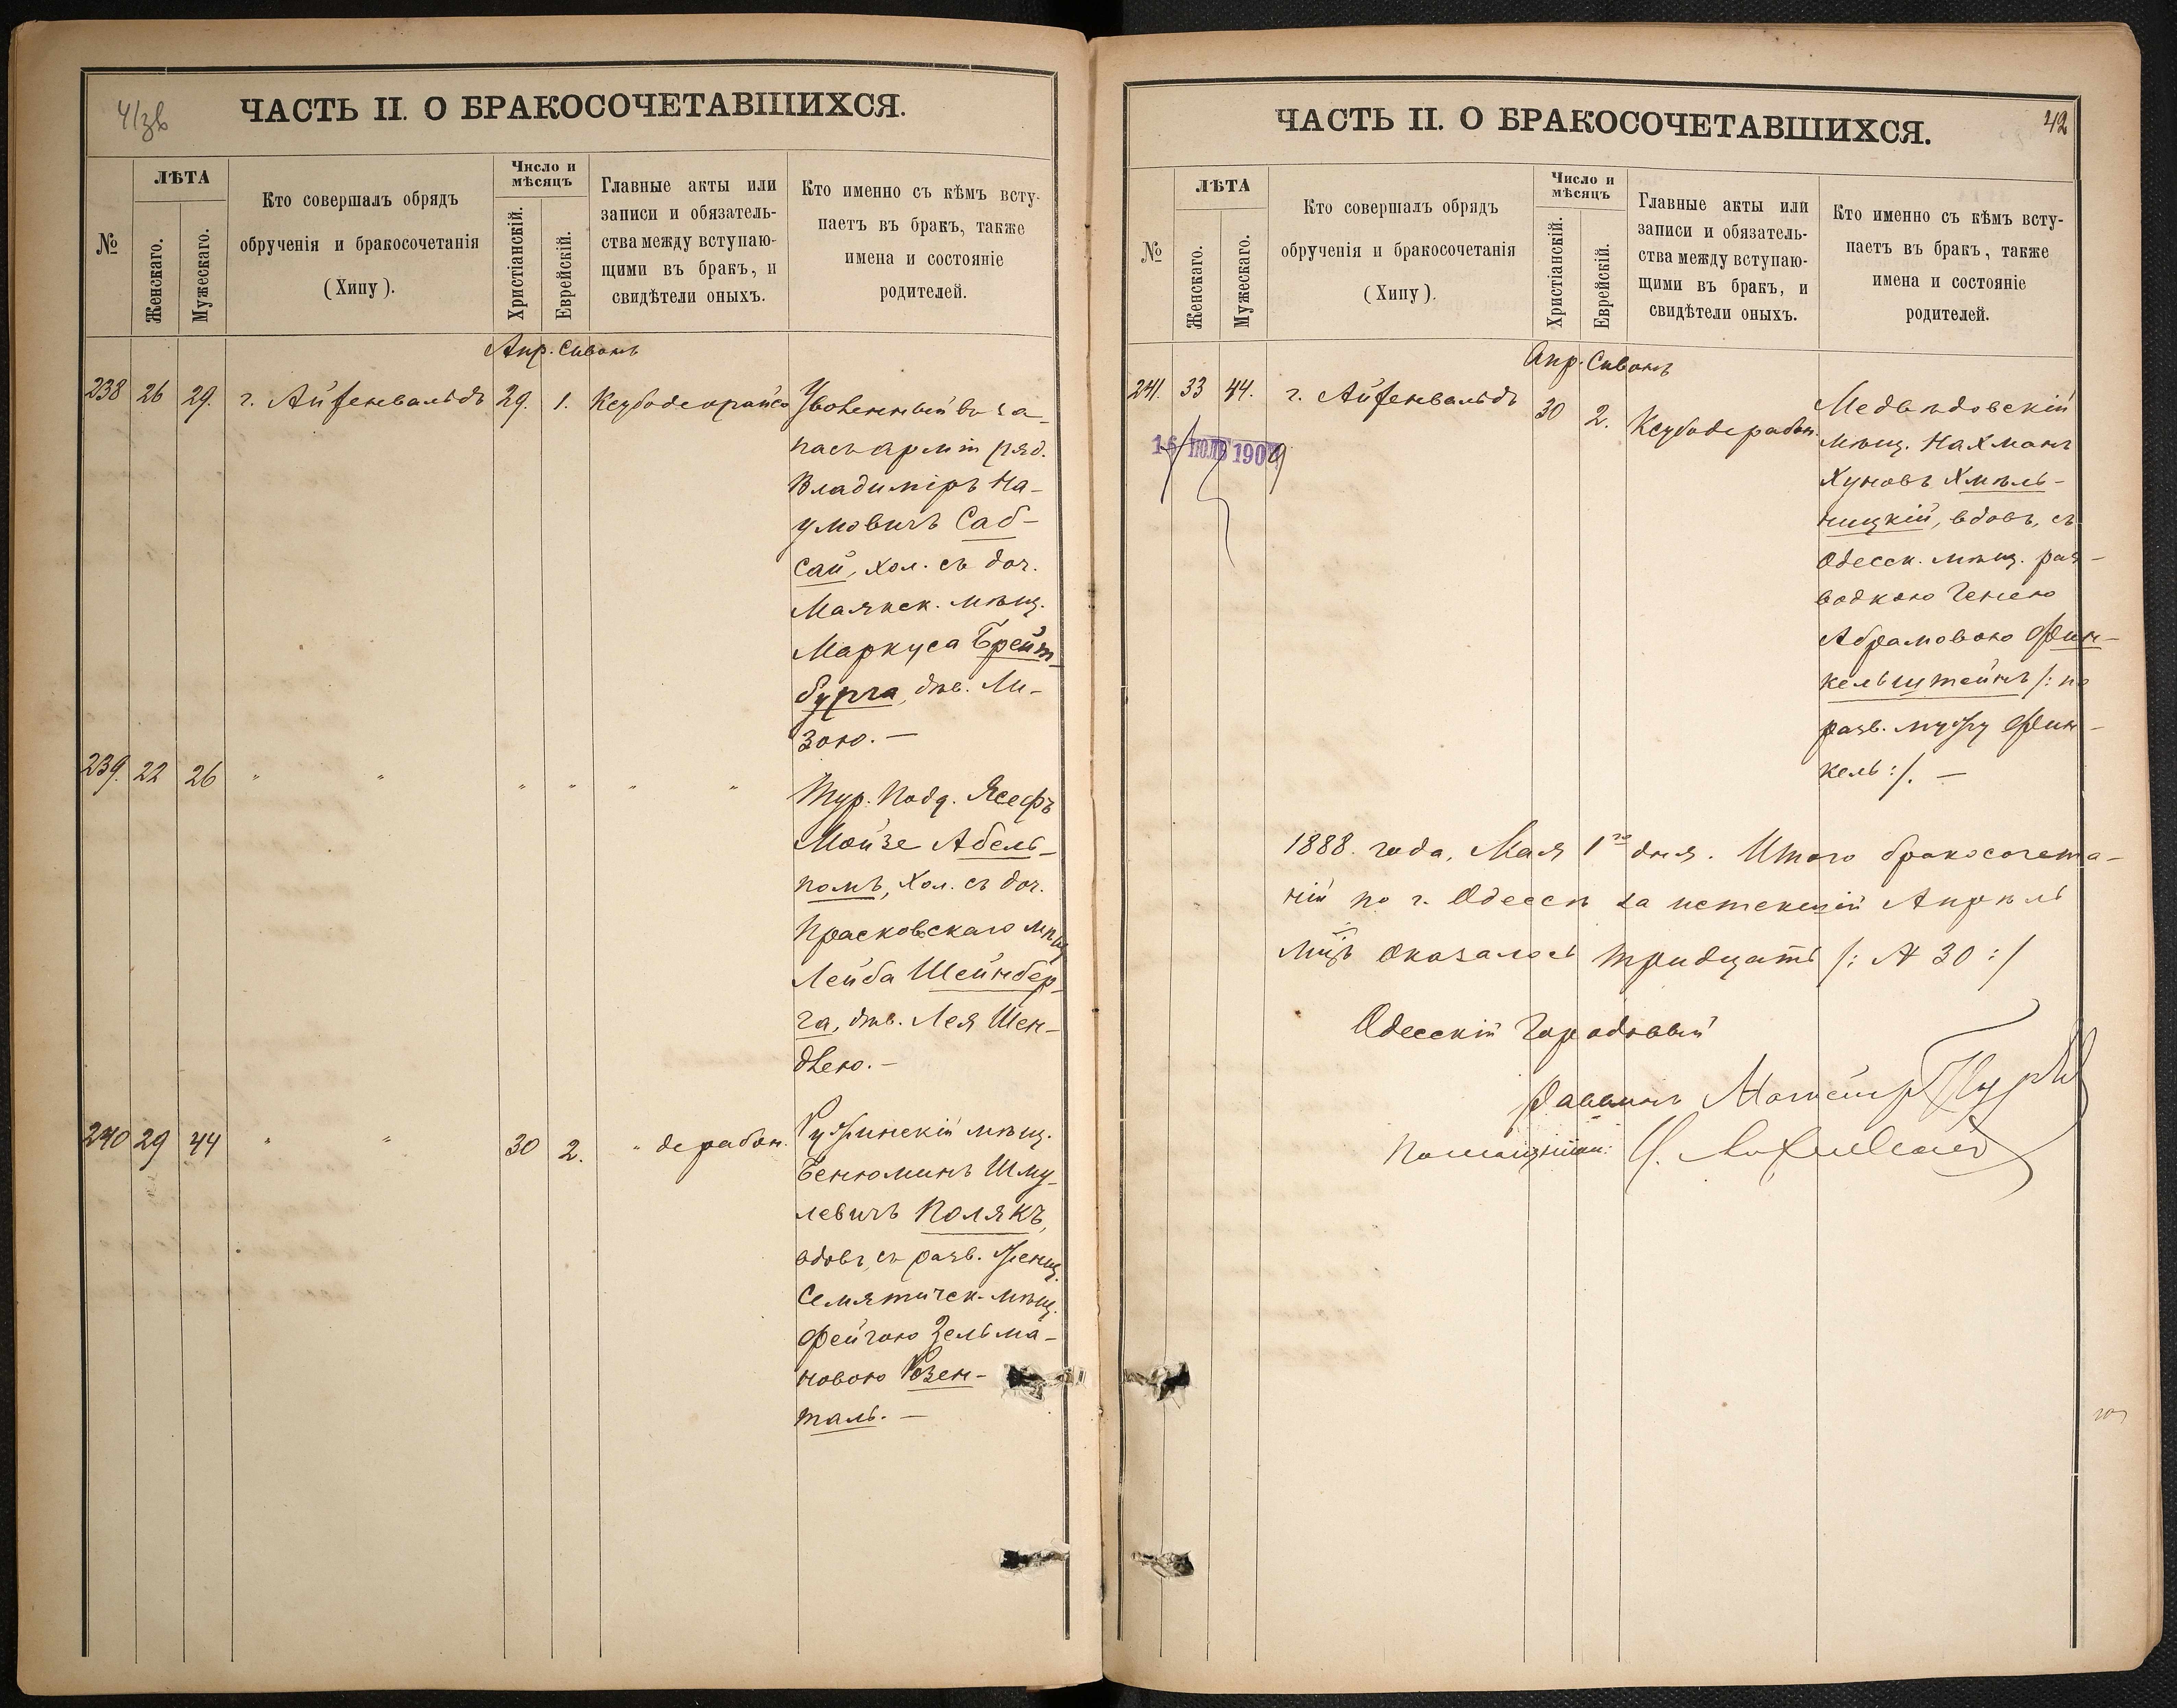 41зв
ЧАСТЬ II. О БРАКОСОЧЕТАВШИХСЯ.
№
ЛѢТА
Женскаго.
Мужескаго.
Кто совершалъ обрядъ
обрученія и бракосочетанія
(Хипу).
Число и
мѣсяцъ
Христіанскій.
Еврейскій.
Главные акты или
записи и обязатель-
ства между вступаю-
щими въ бракъ, и
свидѣтели оныхъ.
Кто именно съ кѣмъ всту-
паетъ въ бракъ, также
имена и состояніе
родителей.
Апр. Сивонъ
238 26 29. г. Айзенвальдъ 29. 1. Ксубодеорайсо
Уволенный въ за-
пасъ арміи ряд.
Владиміръ На-
умовичъ Саб-
сай, хол. съ доч.
Маякск. мѣщ.
Маркуса Брейт-
бурга, дѣв. Ли-
зою. —
239. 22 26 " " " " " "
Тур. Подд. Ясефъ
Мойзе Абель-
помъ, Хол. съ доч.
Прасковскаго мѣщ
Лейба Шейнбер-
га, дѣв. Лея Шен-
длею. —
240 29 44 " " 30 2. " дерабон.
Ружинскій мѣщ.
Бенюминъ Шму-
левичъ Полякъ,
вдовъ, съ разв. женщ.
Семятичск. мѣщ.
Фейгою Зельма-
новою Розен-
таль. —
42
ЧАСТЬ II. О БРАКОСОЧЕТАВШИХСЯ.
№
ЛѢТА
Женскаго.
Мужескаго.
Кто совершалъ обрядъ
обрученія и бракосочетанія
(Хипу).
Число и
мѣсяцъ
Христіанскій.
Еврейскій.
Главные акты или
записи и обязатель-
ства между вступаю-
щими въ бракъ, и
свидѣтели оныхъ.
Кто именно съ кѣмъ всту-
паетъ въ бракъ, также
имена и состояніе
родителей.
Апр. Сивонъ
241. 33 44. г. Айзенвальдъ 30 2. Ксубодерабон.
16 ІЮЛЬ 1909
Медвѣдовскій
мѣщ. Нахманъ
Хуновъ Хмѣль-
ницкій, вдовъ, съ
Одесск. мѣщ. раз-
водкою Генею
Абрамовою Фин-
кельштейнъ /: по
разв. мужу Фин-
кель :/. —
1888 года, Мая 1го дня. Итого бракосочета-
ній по г. Одессѣ за истекшій Апрѣль
мцъ оказалось тридцать /: № 30 :/
Одесскій Городовый
Раввинъ
Помощникъ: